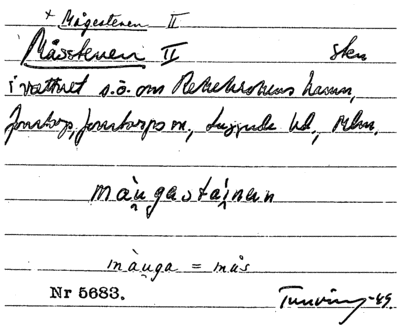 x Mågestenen II
Måsstenen II skn
i vattnet s.ö. om Rekekrokens hamn,
Jonstorp, Jonstorps sn, Luggude hd, Mlm.
màu̯gastái̯nən
màu̯ga = mås
Nr 5683. Tunving -49